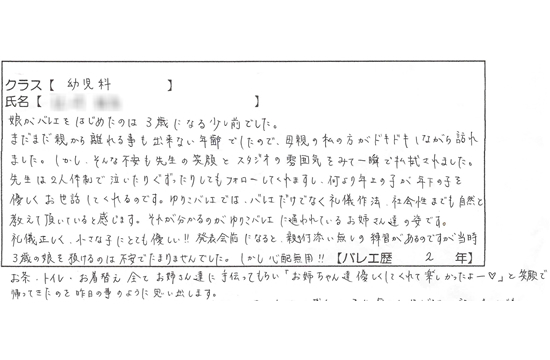 クラス【 幼児科 】
氏名【 】
娘がバレエをはじめたのは 3歳になる少し前でした。
まだまだ親から離れる事も出来ない年齢でしたので、母親の私の方がドキドキしながら訪れ
ました。しかし、そんな不安も先生の笑顔とスタジオの雰囲気をみて一瞬で払拭されました。
先生は2人体制で泣いたりぐずったりしてもフォローしてくれますし、何より年上の子が年下の子を
優しくお世話してくれるのです。ゆりこバレエでは、バレエだけでなく礼儀作法、社会性までも自然と
教えて頂いていると感じます。それが分かるのがゆりこバレエに通われているお姉さん達の姿です。
礼儀正しく、小さな子にとても優しい!! 発表会前になると、親付添い無しの練習があるのですが当時
3歳の娘を預けるのは不安でたまりませんでした。しかし心配無用!!【バレエ歴 2 年】
お茶・トイレ・お着替え 全てお姉さん達に手伝ってもらい「お姉ちゃん達優しくしてくれて楽しかったよー♡」と笑顔で
帰ってきたのを昨日の事のように思い出します。